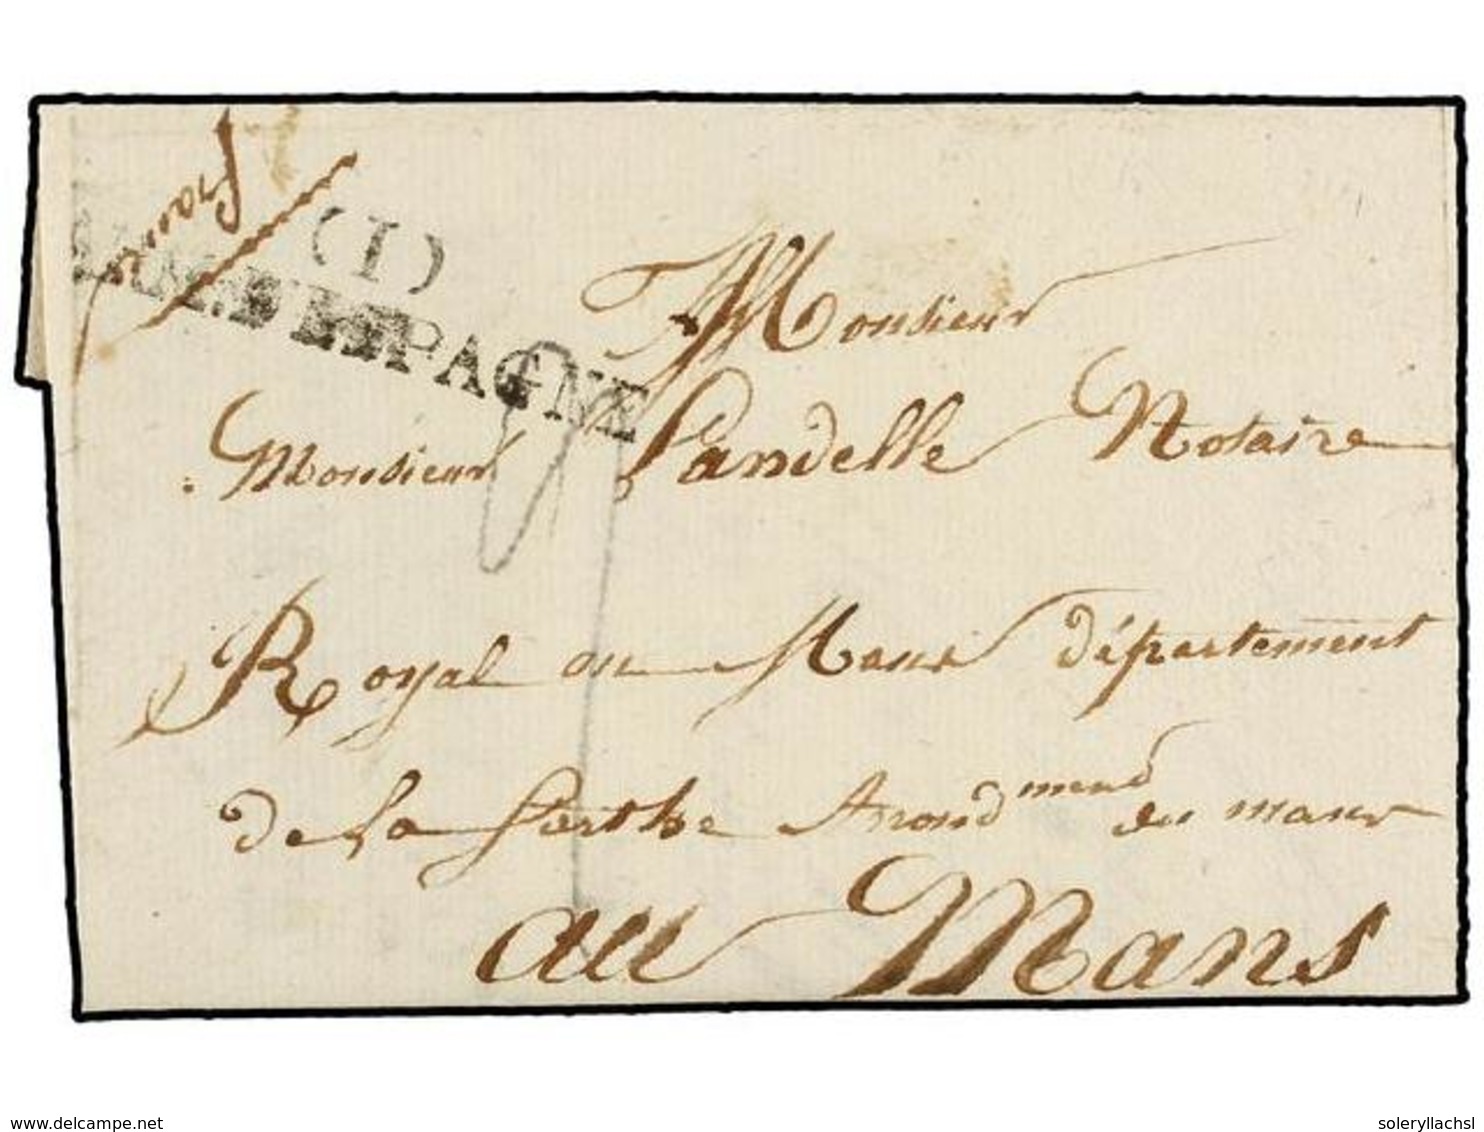 franc
(I)
ARM. D'ESPAGNE
Monsieur
Monsieur Landelle Notaire
Royal au Mans département
de la Sarthe Arond^ment du mans
au Mans
delcampe.net
soleryllachsl